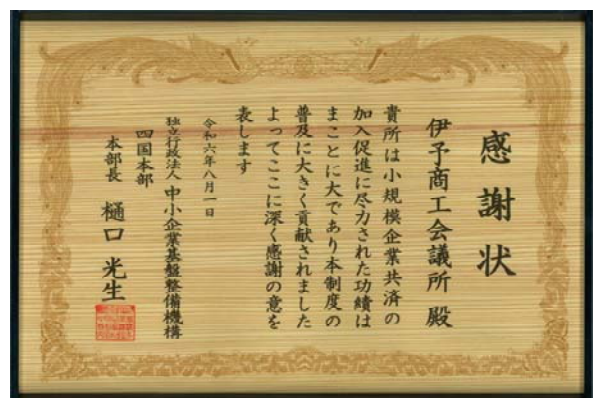 感謝状
伊予商工会議所 殿
貴所は小規模企業共済の
加入促進に尽力された功績は
まことに大であり本制度の
普及に大きく貢献されました
よってここに深く感謝の意を
表します
令和六年八月一日
独立行政法人 中小企業基盤整備機構
四国本部
本部長 樋口 光生